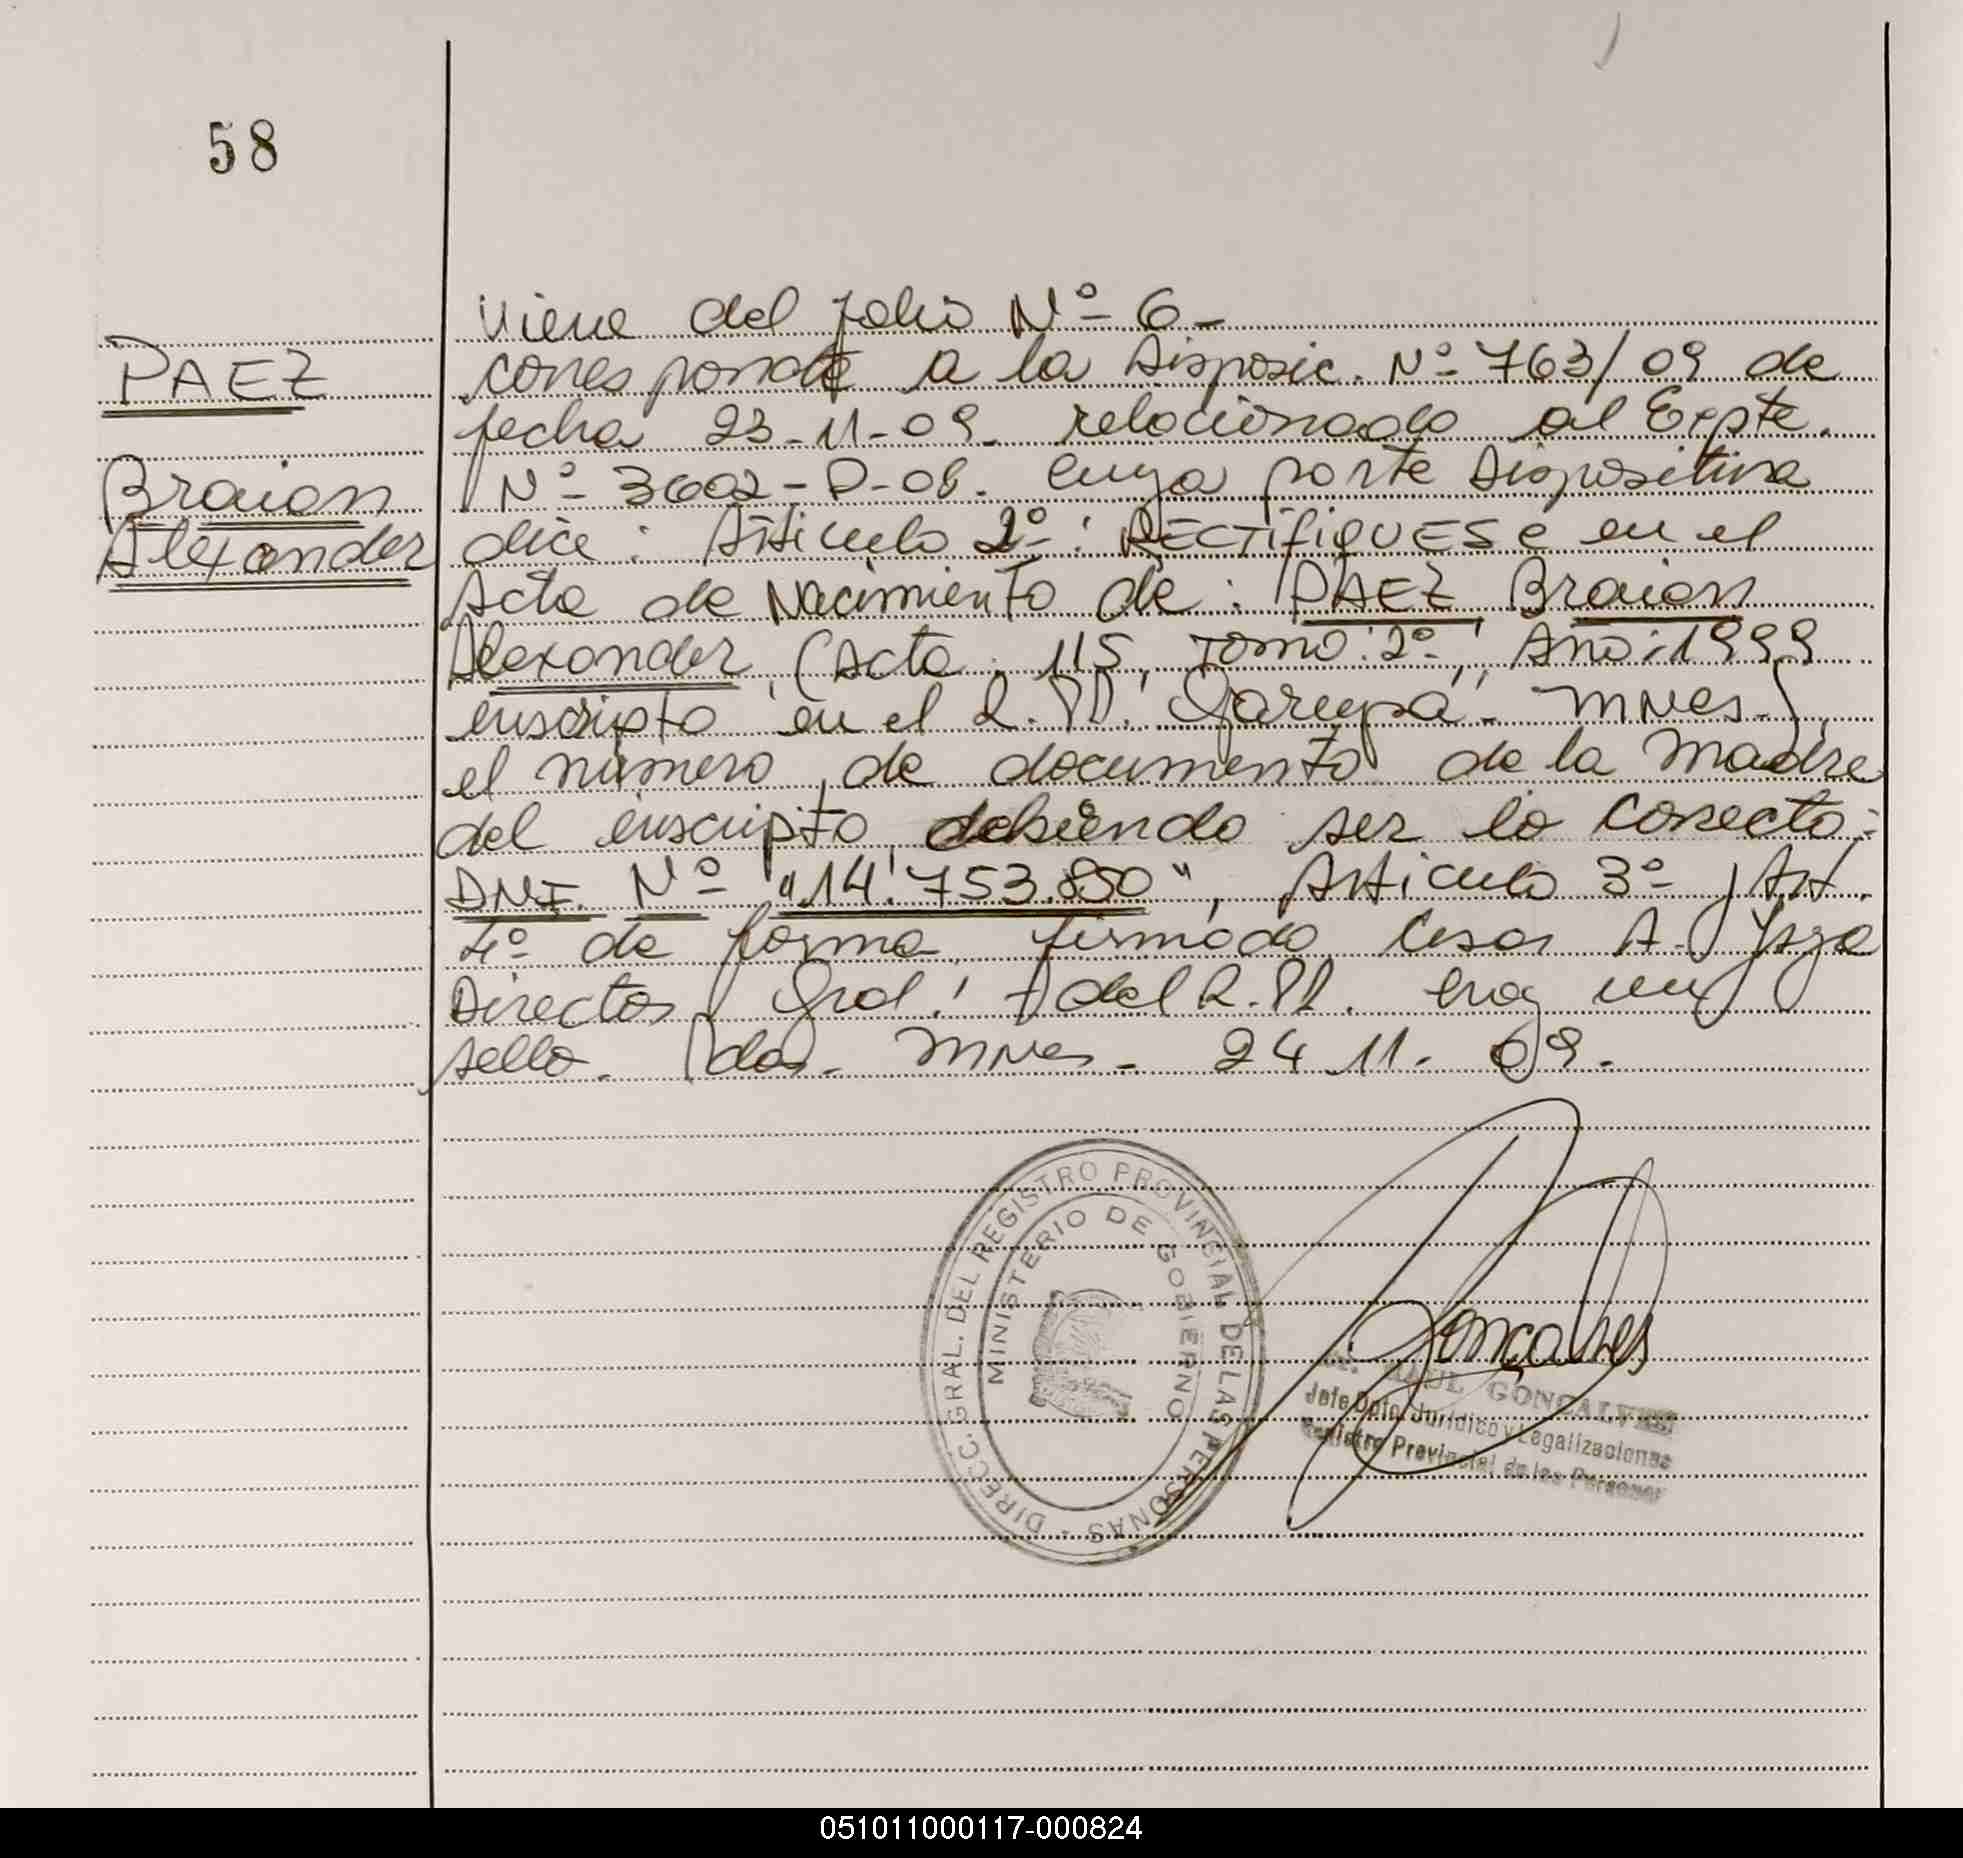 58
PAEZ
Braian
Alexander
Viene del folio Nº 6 -
corresponde a la Disposic. Nº 763/09 de
fecha 23-11-09. relacionado al Expte.
Nº 3602-P-08. cuya parte Dispositiva
dice: Artículo 2º: RECTIFIQUESE en el
Acta de Nacimiento de: PAEZ Braian
Alexander, (Acta: 115, Tomo: 2º, Año: 1999
inscripto en el R.PP. Garupá - Mnes.),
el número de documento de la Madre
del inscripto, debiendo ser lo Correcto:
DNI. Nº "14.753.850", Artículo 3º y Art.
4º de forma, firmado Cesar A.
Director Gral. del R.PP. hay un
sello. Pdas. Mnes. 24 11. 09.
DIRECC. GRAL. DEL REGISTRO PROVINCIAL DE LAS PERSONAS
MINISTERIO DE GOBIERNO
Goncalves
RAUL GONCALVES
Jefe Dpto. Jurídico y Legalizaciones
Registro Provincial de las Personas
051011000117-000824